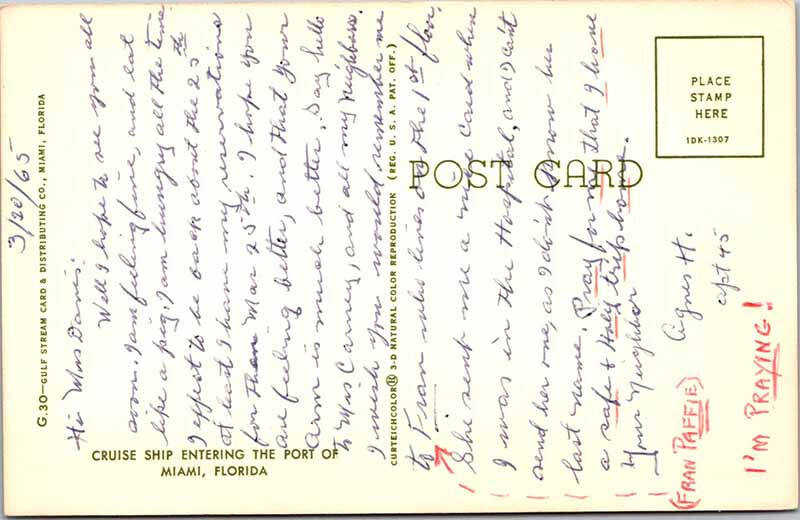 3/20/65
Hi Miss Davis:
Well I hope to see you all
soon. I am feeling fine, and eat
like a pig, I am hungry all the time
I expect to be back about the 25th
at last I have my reservations
for them Mar 25th. I hope you
are feeling better, and that your
Arm is much better. Say hello
to Mrs Carney, and all my neighbors.
I wish you would remember me
to Fran who lives on the 1st floor,
She sent me a nice card when
I was in the Hospital, and I can't
send her one, as I don't know her
last name. Pray for me that I have
a safe & Holy trip home.
Your Neighbor
Agnes H.
apt 45
(FRAN PAFFIE)
I'M PRAYING!
G.30—GULF STREAM CARD & DISTRIBUTING CO., MIAMI, FLORIDA
CRUISE SHIP ENTERING THE PORT OF
MIAMI, FLORIDA
CURTEICHCOLOR® 3-D NATURAL COLOR REPRODUCTION (REG. U. S. A. PAT. OFF.)
POST CARD
PLACE
STAMP
HERE
1DK-1307